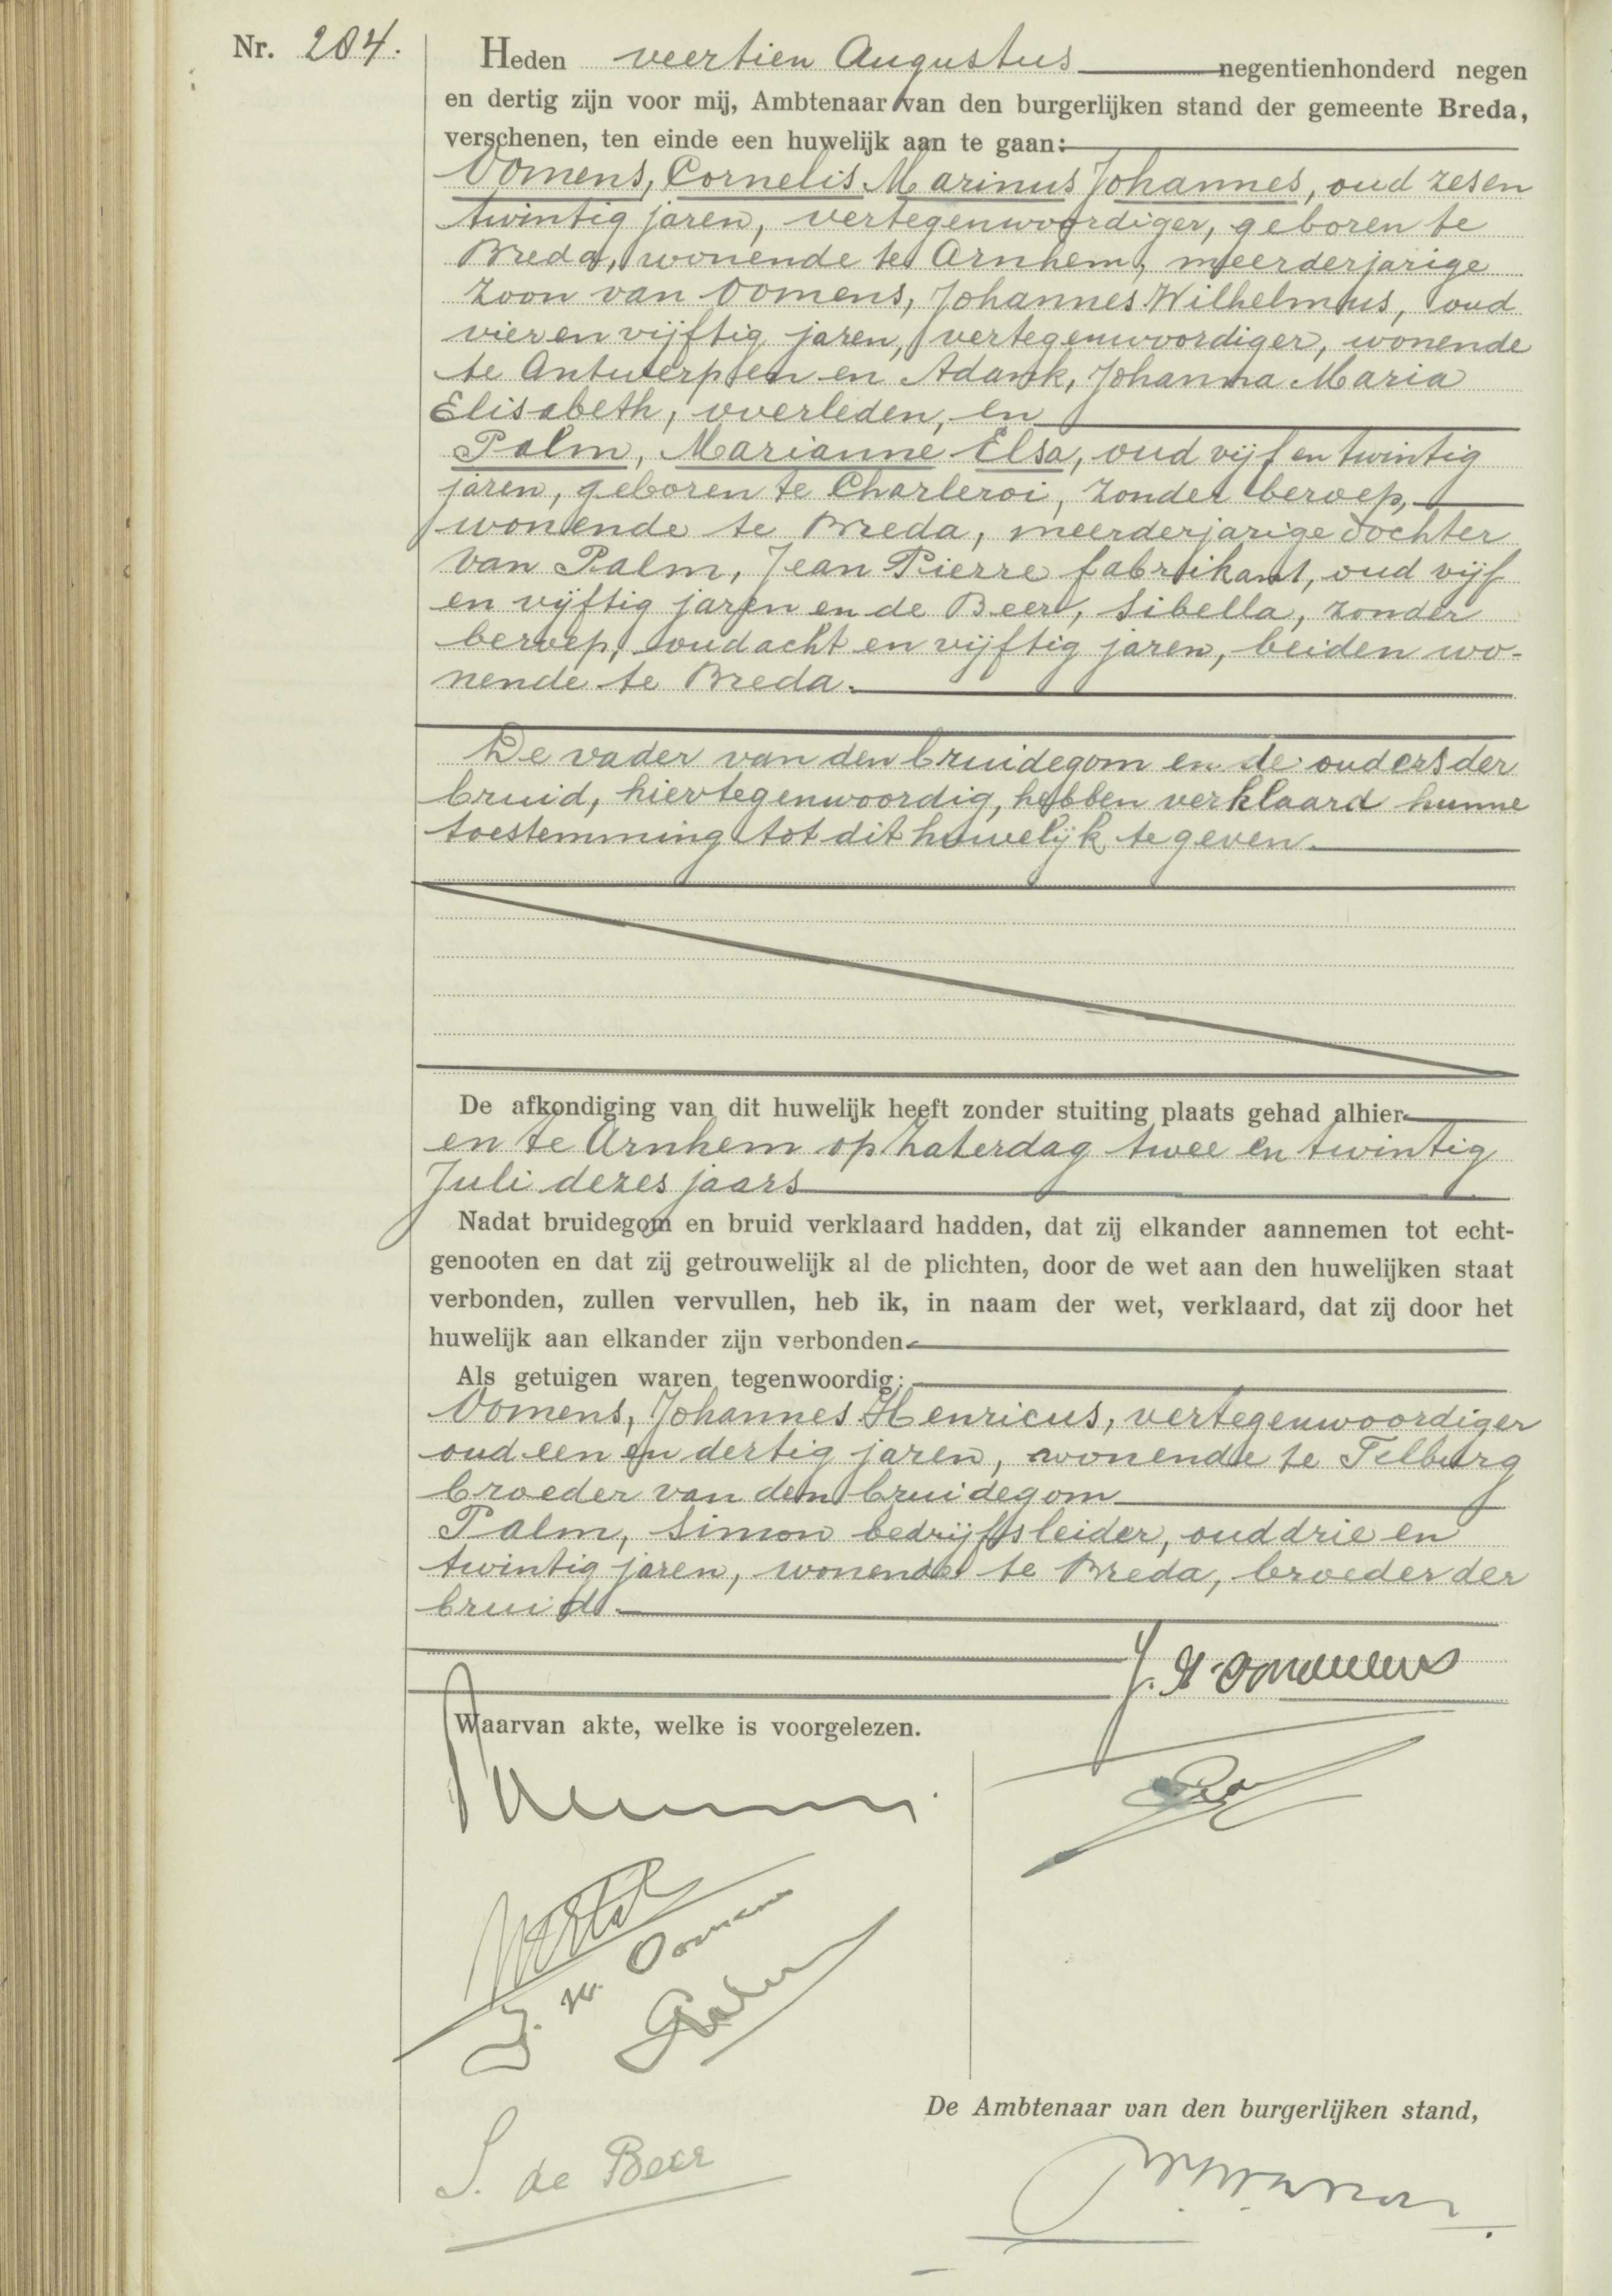 Nr. 284.
Heden veertien Augustus negentienhonderd negen
en dertig zijn voor mij, Ambtenaar van den burgerlijken stand der gemeente Breda,
verschenen, ten einde een huwelijk aan te gaan:
Oomens, Cornelis Marinus Johannes, oud zesen
twintig jaren, vertegenwoordiger, geboren te
Breda, wonende te Arnhem, meerderjarige
zoon van Oomens, Johannes Wilhelmus, oud
vier en vijftig jaren, vertegenwoordiger, wonende
te Antwerpen en Adank, Johanna Maria
Elisabeth, overleden, en
Palm, Marianne Elsa, oud vijf en twintig
jaren, geboren te Charleroi, zonder beroep,
wonende te Breda, meerderjarige dochter
van Palm, Jean Pierre fabrikant, oud vijf
en vijftig jaren en de Beer, Sibella, zonder
beroep, oud acht en vijftig jaren, beiden wo-
nende te Breda.
De vader van den bruidegom en de ouders der
bruid, hiertegenwoordig, hebben verklaard hunne
toestemming tot dit huwelijk te geven.
De afkondiging van dit huwelijk heeft zonder stuiting plaats gehad alhier
en te Arnhem op zaterdag twee en twintig
Juli dezes jaars
Nadat bruidegom en bruid verklaard hadden, dat zij elkander aannemen tot echt-
genooten en dat zij getrouwelijk al de plichten, door de wet aan den huwelijken staat
verbonden, zullen vervullen, heb ik, in naam der wet, verklaard, dat zij door het
huwelijk aan elkander zijn verbonden.
Als getuigen waren tegenwoordig:
Oomens, Johannes Henricus, vertegenwoordiger
oud een en dertig jaren, wonende te Tilburg
broeder van den bruidegom
Palm, Simon bedrijfsleider, oud drie en
twintig jaren, wonende te Breda, broeder der
bruid.
J. H. Oomens
Waarvan akte, welke is voorgelezen.
J. W. Oomens
S. de Beer
De Ambtenaar van den burgerlijken stand,